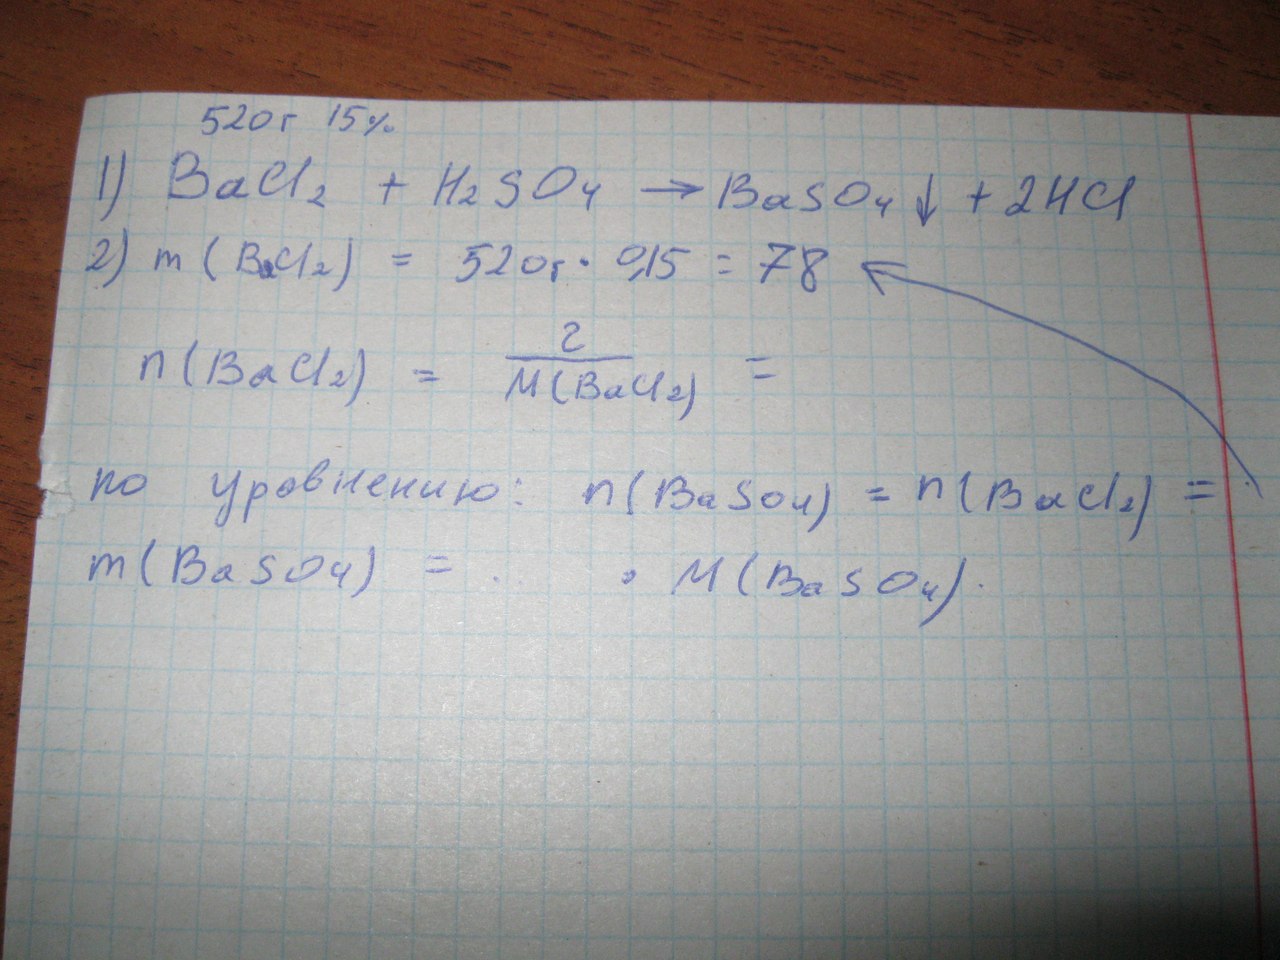 520г 15%
1) BaCl2 + H2SO4 → BaSO4 ↓ + 2HCl
2) m (BaCl2) = 520г · 0,15 = 78
n (BaCl2) = г / M(BaCl2) =
по уровнению: n (BaSO4) = n (BaCl2) =
m (BaSO4) = .. · M (BaSO4).